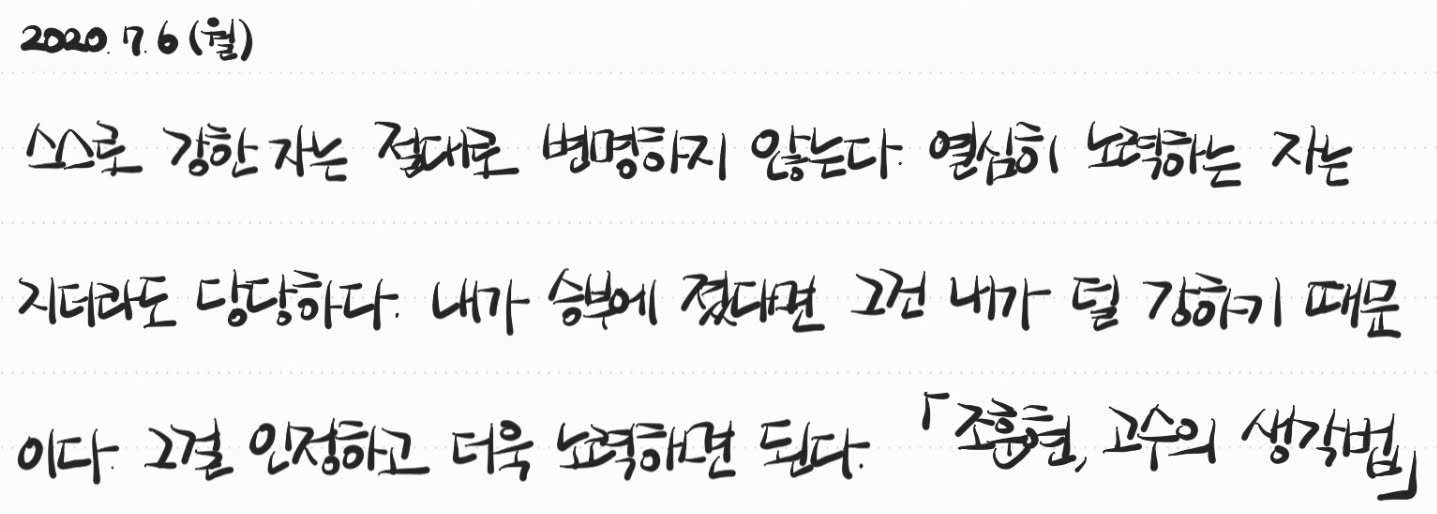 2020. 7. 6 (월)
스스로 강한 자는 절대로 변명하지 않는다. 열심히 노력하는 자는
지더라도 당당하다. 내가 승부에 졌다면 그건 내가 덜 강하기 때문
이다. 그걸 인정하고 더욱 노력하면 된다. 「조훈현, 고수의 생각법」